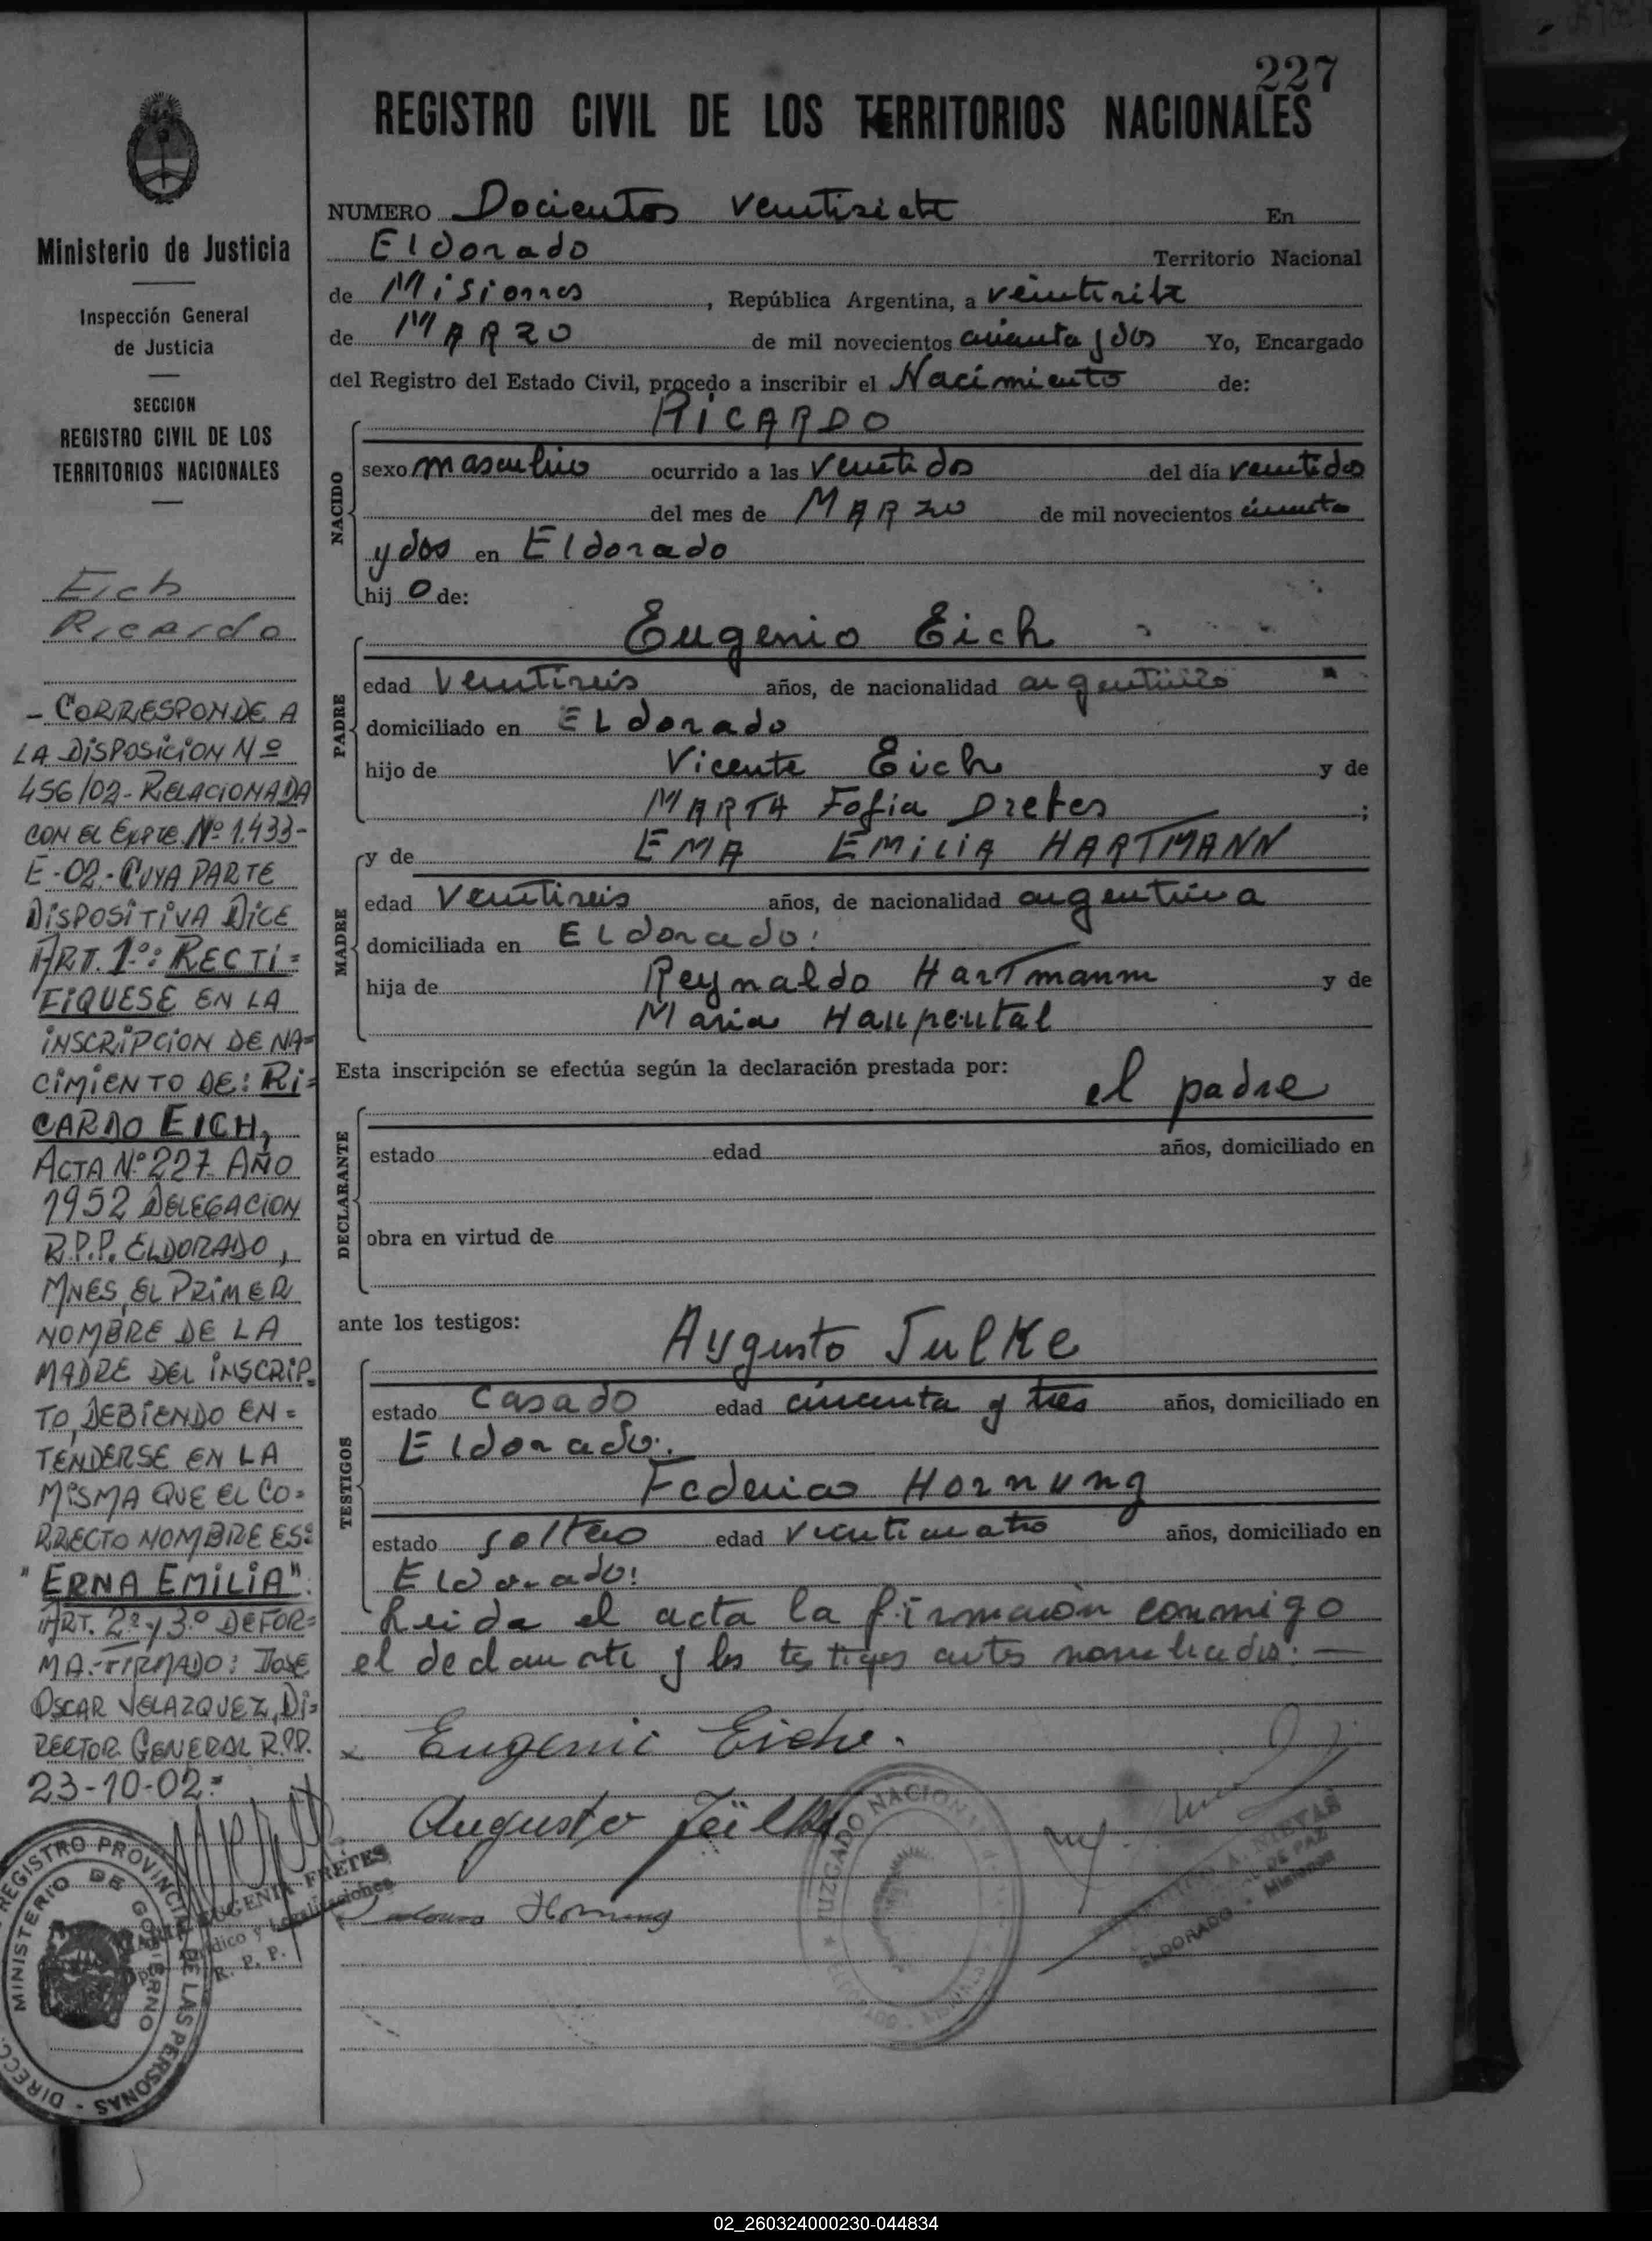 227
REGISTRO CIVIL DE LOS TERRITORIOS NACIONALES
Ministerio de Justicia
Inspección General
de Justicia
SECCION
REGISTRO CIVIL DE LOS
TERRITORIOS NACIONALES
Eich
Ricardo
- CORRESPONDE A
LA DISPOSICION Nº
456/02- RELACIONADA
CON EL EXPTE. Nº 1.433-
E-02.- CUYA PARTE
DISPOSITIVA DICE
ART. 1º: RECTI=
FIQUESE EN LA
INSCRIPCION DE NA=
CIMIENTO DE: RI=
CARDO EICH,
ACTA Nº 227 AÑO
1952 DELEGACION
R.P.P. ELDORADO,
MNES, EL PRIMER
NOMBRE DE LA
MADRE DEL INSCRIP.
TO, DEBIENDO EN=
TENDERSE EN LA
MISMA QUE EL CO=
RRECTO NOMBRE ES:
"ERNA EMILIA".
ART. 2º y 3º DE FOR=
MA.-FIRMADO: JOSE
OSCAR VELAZQUEZ, DI=
RECTOR GENERAL R.P.P.
23-10-02=
REGISTRO PROVINCIAL DE LAS PERSONAS - DIRECC.
MINISTERIO DE GOBIERNO
MARIA EUGENIA FRETES
Jurídico y Legalizaciones
R. P. P.
NUMERO Docientos veintisiete En
Eldorado Territorio Nacional
de Misiones, República Argentina, a veintisite
de MARZO de mil novecientos cincuenta y dos Yo, Encargado
del Registro del Estado Civil, procedo a inscribir el Nacimiento de:
NACIDO
RICARDO
sexo masculino ocurrido a las veintidos del día veintidos
del mes de MARZO de mil novecientos cincuenta
y dos en Eldorado
hijo de:
PADRE
Eugenio Eich
edad Veintiseis años, de nacionalidad argentino
domiciliado en ELdorado
hijo de Vicente Eich y de
MARTA Fofia Dretes;
MADRE
y de EMA EMILIA HARTMANN
edad Veintiseis años, de nacionalidad argentina
domiciliada en ELdorado:
hija de Reynaldo Hartmann y de
Maria Haupental
Esta inscripción se efectúa según la declaración prestada por:
el padre
DECLARANTE
estado edad años, domiciliado en
obra en virtud de
ante los testigos:
TESTIGOS
Augusto Julke
estado Casado edad cincuenta y tres años, domiciliado en
Eldorado.
Federico Hornung
estado soltero edad veinticuatro años, domiciliado en
Eldorado:
Leida el acta la firmaron conmigo
el declarante y los testigos antes nombrados:
x Eugenio Eiche.
Augusto Jülke
Hornung
JUZGADO NACIONAL
NIEVAS
DE PAZ
ELDORADO - Misiones
02_260324000230-044834